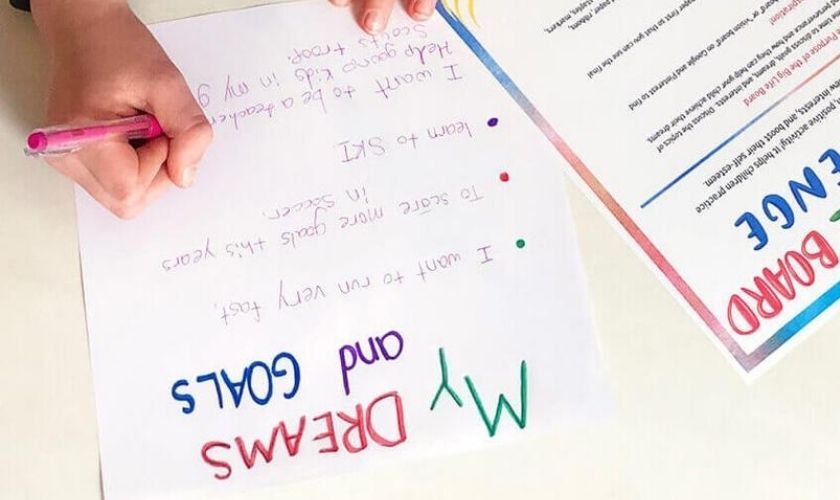 My DREAMS
and GOALS
I want to run very fast.
To score more goals this years
in Soccer.
learn to SKI
I want to be a teacher
Help kids in my g
Scouts troop.
BOARD
ENGE
positive activity: it helps children practice
interests, and boost their self-esteem.
Purpose of the Big Life Board
time to discuss goals, dreams, and interests. Discuss the topics of
perseverance and how they can help your child achieve their dreams.
spiration!
board" or "vision board" on Google and Pinterest to find
paper first so that you can see the final
paper, ribbon,
staples, markers,